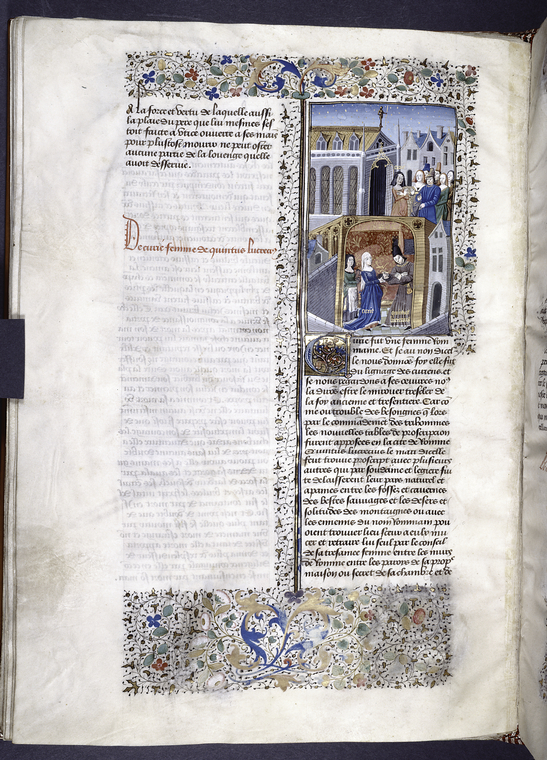 A la force et vertu de laquelle aussi
la plaie du pere que lui mesmes fest
toit faicte a vtice ouuerte a ses mais
pour plustost mourir ne peut oster
aucune partie de la louenge quelle
auoit desseruie.
De curie femme de quintus lucreci
Curie fut vne femme Rom
maine. Et se au nom dicel
le nous donnos foy elle fut
du lignage des curiens et
se nous regardons a ses œuures no
la deuos estre le mirouer tresler de
la foy ancienne et tresentiere Car co
me ou trouble des besongnes q lors
par le commandemēt des tribommes
les nouuelles tables de proscripcion
furent apposees en la cite de Romme
quintus lucrecius le mari dicelle
feut trouue proscript auec plusieurs
autres qui par soudaine et legiere fui
te delaisserent leur pais naturel et
a paines entre les fosses et cauernes
des bestes sauuages et les desers et
solitudes des montaignes ou auec
les ennemis du nom Rommain pou
oient trouuer lieu seur a eulx mu
cer et retraire lui seul par le conseil
de sa tresamee femme entre les murs
de Romme entre les parois de sa prop
maison ou secret de sa chambre et de